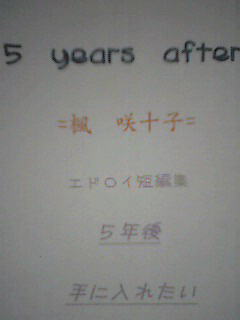 5 years after
=楓 咲十子=
エドロイ短編集
5年後
手に入れたい